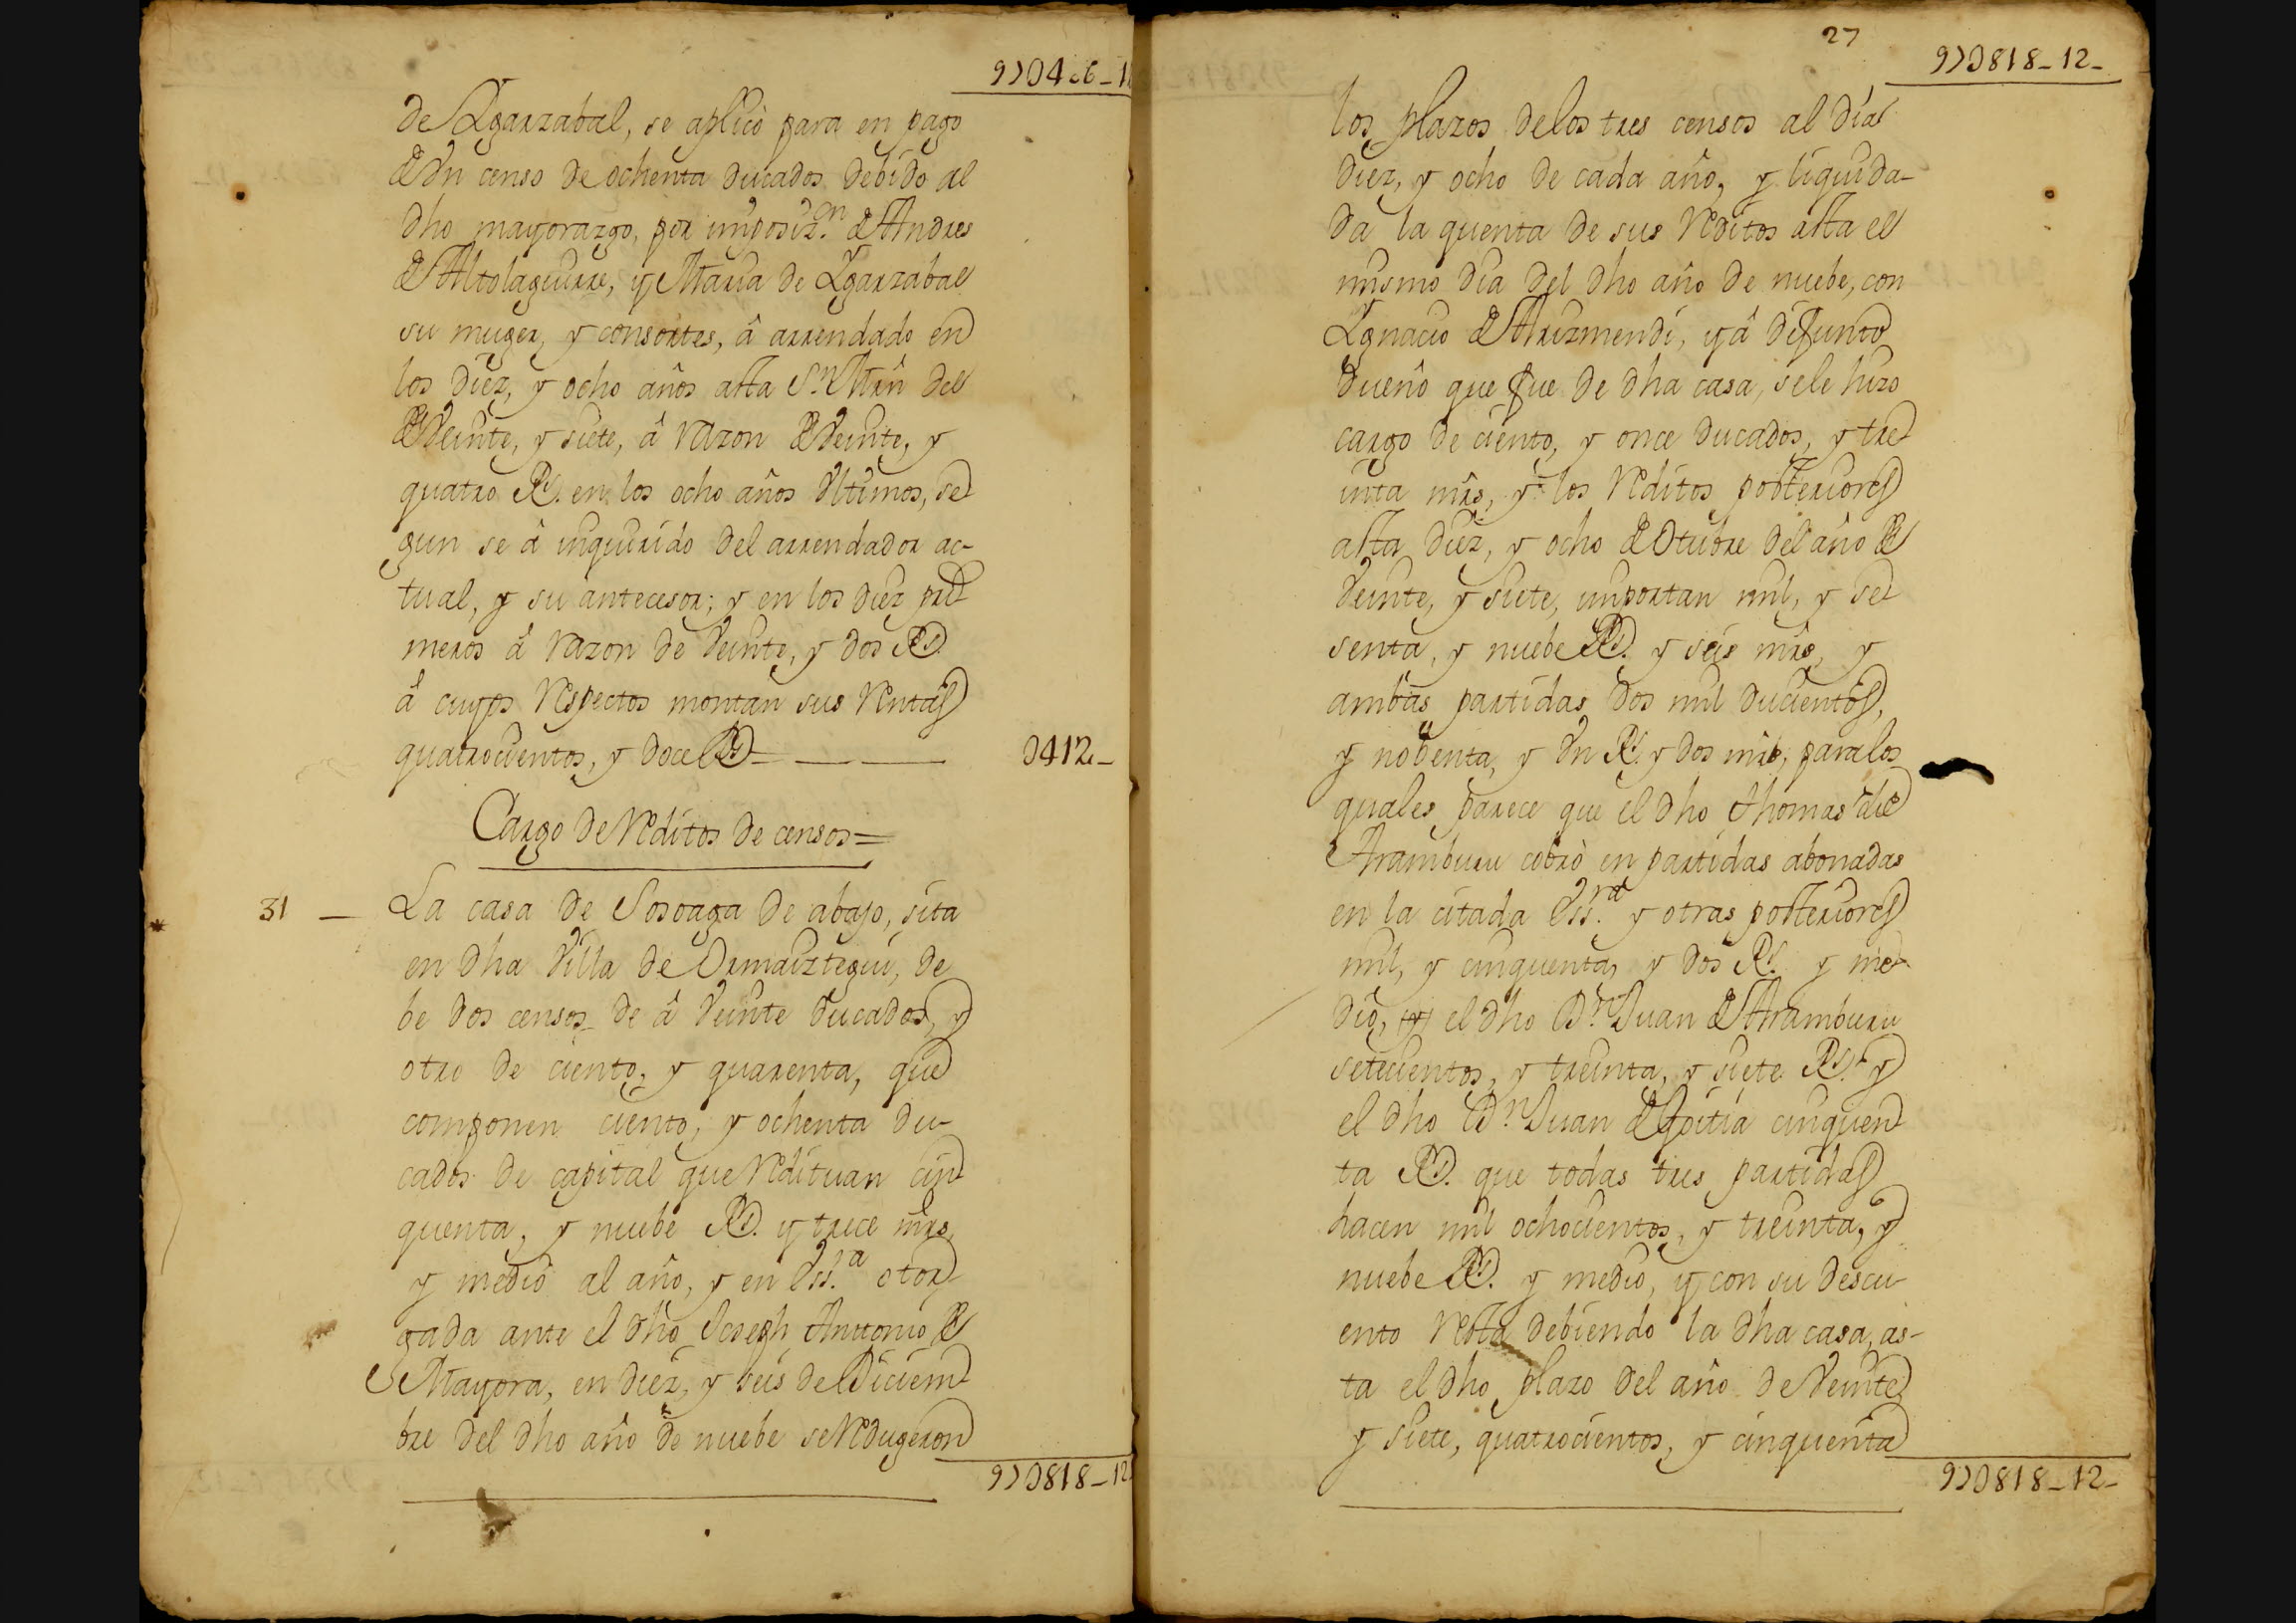 97U406-1
de Ygarzabal, se aplicò para en pago
de Vn censo de ochenta ducados debido al
dho mayorazgo, por imposiz.on de Andres
de Altolaguirre, y Maria de Ygarzabal
su muger, y consortes, â arrendado en
los diez, y ocho años asta Sn. Mrñ del
de Veinte, y siete, â razon de Veinte, y
quatro Rs. en los ocho años Vltimos, se
gun se â inquirido del arrendador ac-
tual, y su antecesor; y en los diez pri
meros â razon de Veinte, y dos Rs.
â cuyos respectos montan sus rentas
quatrocientos, y doce Rs — — —
U412-
Cargo de reditos de censos=
31 — La casa de Sosoaga de abajo, sita
en dha Villa de Ormaiztegui, de
be dos censos de â Veinte ducados, y
otro de ciento, y quarenta, que
componen ciento, y ochenta du-
cados de capital que redituan cin
quenta, y nuebe Rs. y trece mrs,
y medio al año, y en Ess.ra otor
gada ante el dho Joseph Anttonio de
Mayora, en diez, y seis de Diciem
bre del dho año de nuebe se redugeron
97U818-12
27
97U818-12-
los plazos delos tres censos al dia
diez, y ocho de cada año, y liquida-
da la quenta de sus reditos asta el
mismo dia del dho año de nuebe, con
Ygnacio de Arizmendi, yâ difunto
dueño que fue de dha casa, sele hizo
cargo de ciento, y once ducados, y tre
inta mrs, y los reditos posteriores
asta diez, y ocho de Otubre del año de
Veinte, y siete, importan mil, y se
senta, y nuebe Rs. y seis mrs, y
ambas partidas dos mil ducientos,
y nobenta, y Vn Rs. y dos mrs, paralos
quales parece que el dho Thomas de
Aramburu cobrò en partidas abonadas
en la citada Ess.ra y otras posteriores
mil, y cinquenta, y dos Rs. y me
dio, (y) el dho Dn. Juan de Aramburu
setecientos, y treinta, y siete Rs. y
el dho Dn. Juan de Goitia cinquen
ta Rs. que todas tres partidas
hacen mil ochocientos, y treinta, y
nuebe Rs. y medio, y con su descu-
ento resta debiendo la dha casa, as-
ta el dho plazo del año de Veinte
y siete, quatrocientos, y cinquenta
97U818-12-